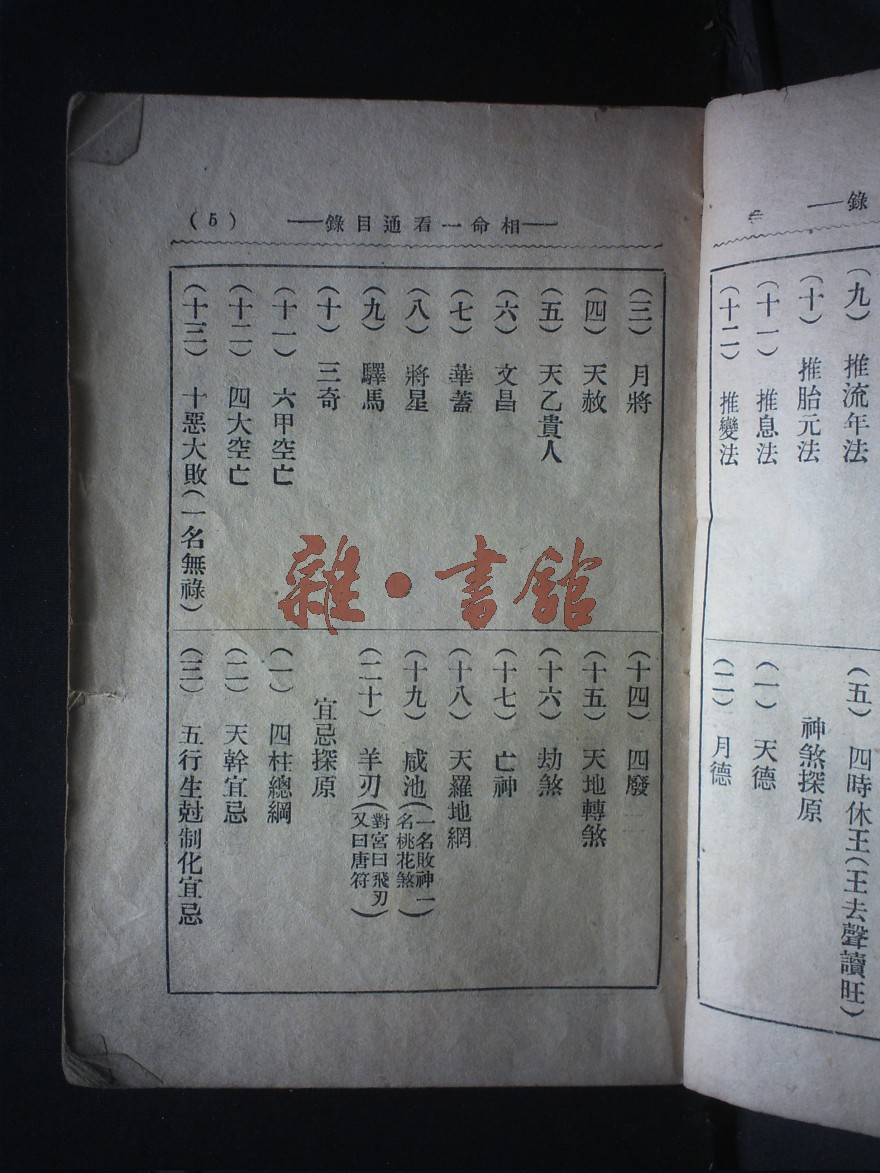 錄—
(九) 推流年法
(十) 推胎元法
(十一) 推息法
(十二) 推變法
(五) 四時休王(王去聲讀旺)
神煞探原
(一) 天德
(二) 月德
—相命一看通目錄— (5)
(三) 月將
(四) 天赦
(五) 天乙貴人
(六) 文昌
(七) 華蓋
(八) 將星
(九) 驛馬
(十) 三奇
(十一) 六甲空亡
(十二) 四大空亡
(十三) 十惡大敗(一名無祿)
(十四) 四廢
(十五) 天地轉煞
(十六) 劫煞
(十七) 亡神
(十八) 天羅地網
(十九) 咸池(一名敗神一名桃花煞)
(二十) 羊刃(對宮曰飛刃又曰唐符)
宜忌探原
(一) 四柱總綱
(二) 天幹宜忌
(三) 五行生尅制化宜忌
雜·書館